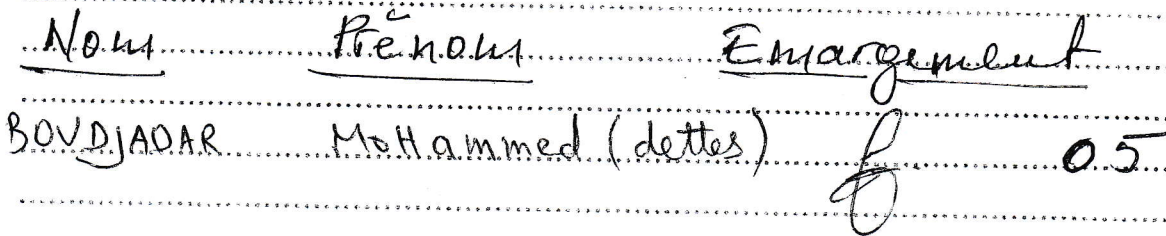 Nom Prénom Emargement
BOUDJADAR MoHammed (dettes) 05